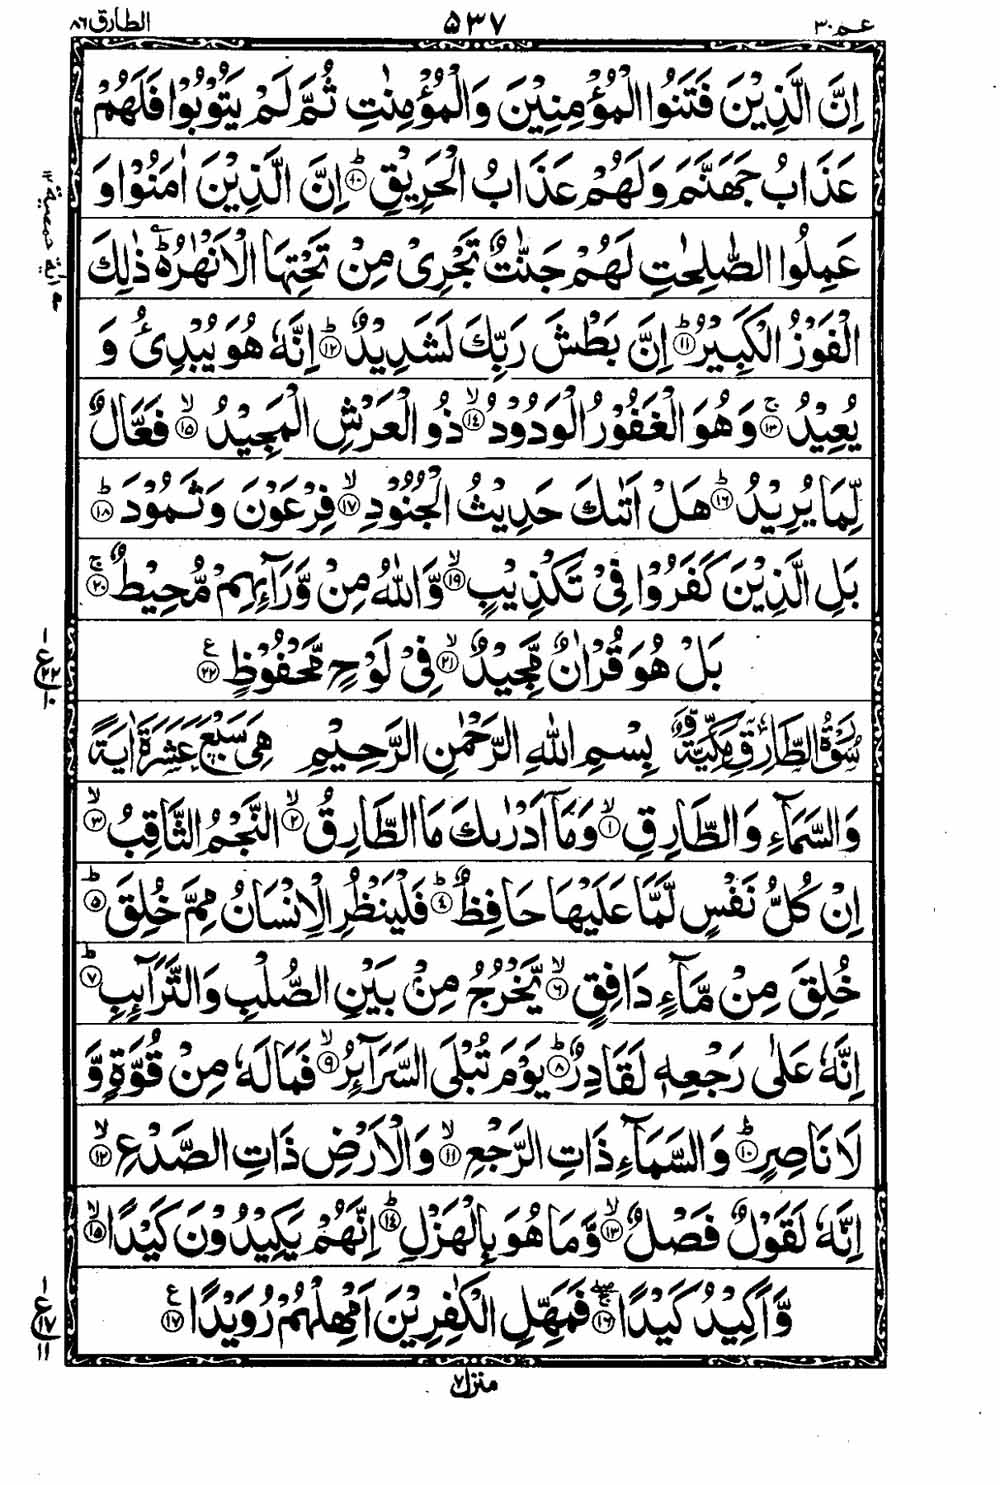 عـم ٣٠ ٥٣٧ الطارق ٨٦
اِنَّ الَّذِيْنَ فَتَنُوا الْمُؤْمِنِيْنَ وَالْمُؤْمِنٰتِ ثُمَّ لَمْ يَتُوْبُوْا فَلَهُمْ
عَذَابُ جَهَنَّمَ وَلَهُمْ عَذَابُ الْحَرِيْقِ ؕ۝۱۰ اِنَّ الَّذِيْنَ اٰمَنُوْا وَ
عَمِلُوا الصّٰلِحٰتِ لَهُمْ جَنّٰتٌ تَجْرِىْ مِنْ تَحْتِهَا الْاَنْهٰرُ ؕ ذٰلِكَ
الْفَوْزُ الْكَبِيْرُ ؕ۝۱۱ اِنَّ بَطْشَ رَبِّكَ لَشَدِيْدٌ ؕ۝۱۲ اِنَّهٗ هُوَ يُبْدِئُ وَ
يُعِيْدُ ۚ۝۱۳ وَهُوَ الْغَفُوْرُ الْوَدُوْدُ ۙ۝۱۴ ذُو الْعَرْشِ الْمَجِيْدُ ۙ۝۱۵ فَعَّالٌ
لِّمَا يُرِيْدُ ؕ۝۱۶ هَلْ اَتٰىكَ حَدِيْثُ الْجُنُوْدِ ۙ۝۱۷ فِرْعَوْنَ وَثَمُوْدَ ؕ۝۱۸
بَلِ الَّذِيْنَ كَفَرُوْا فِىْ تَكْذِيْبٍ ۙ۝۱۹ وَّاللّٰهُ مِنْ وَّرَآئِهِمْ مُّحِيْطٌ ۚ۝۲۰
بَلْ هُوَ قُرْاٰنٌ مَّجِيْدٌ ۙ۝۲۱ فِىْ لَوْحٍ مَّحْفُوْظٍ ۝۲۲
سُوْرَةُ الطَّارِقِ مَكِّيَّةٌ بِسْمِ اللّٰهِ الرَّحْمٰنِ الرَّحِيْمِ هِىَ سَبْعَ عَشَرَةَ اٰيَةً
وَالسَّمَآءِ وَالطَّارِقِ ۙ۝۱ وَمَآ اَدْرٰىكَ مَا الطَّارِقُ ۙ۝۲ النَّجْمُ الثَّاقِبُ ۙ۝۳
اِنْ كُلُّ نَفْسٍ لَّمَّا عَلَيْهَا حَافِظٌ ؕ۝۴ فَلْيَنْظُرِ الْاِنْسَانُ مِمَّ خُلِقَ ؕ۝۵
خُلِقَ مِنْ مَّآءٍ دَافِقٍ ۙ۝۶ يَّخْرُجُ مِنْۢ بَيْنِ الصُّلْبِ وَالتَّرَآئِبِ ؕ۝۷
اِنَّهٗ عَلٰى رَجْعِهٖ لَقَادِرٌ ؕ۝۸ يَوْمَ تُبْلَى السَّرَآئِرُ ۙ۝۹ فَمَا لَهٗ مِنْ قُوَّةٍ وَّ
لَا نَاصِرٍ ؕ۝۱۰ وَالسَّمَآءِ ذَاتِ الرَّجْعِ ۙ۝۱۱ وَالْاَرْضِ ذَاتِ الصَّدْعِ ۙ۝۱۲
اِنَّهٗ لَقَوْلٌ فَصْلٌ ۙ۝۱۳ وَّمَا هُوَ بِالْهَزْلِ ؕ۝۱۴ اِنَّهُمْ يَكِيْدُوْنَ كَيْدًا ۙ۝۱۵
وَّاَكِيْدُ كَيْدًا ۝۱۶ فَمَهِّلِ الْكٰفِرِيْنَ اَمْهِلْهُمْ رُوَيْدًا ۝۱۷
منزل ٧